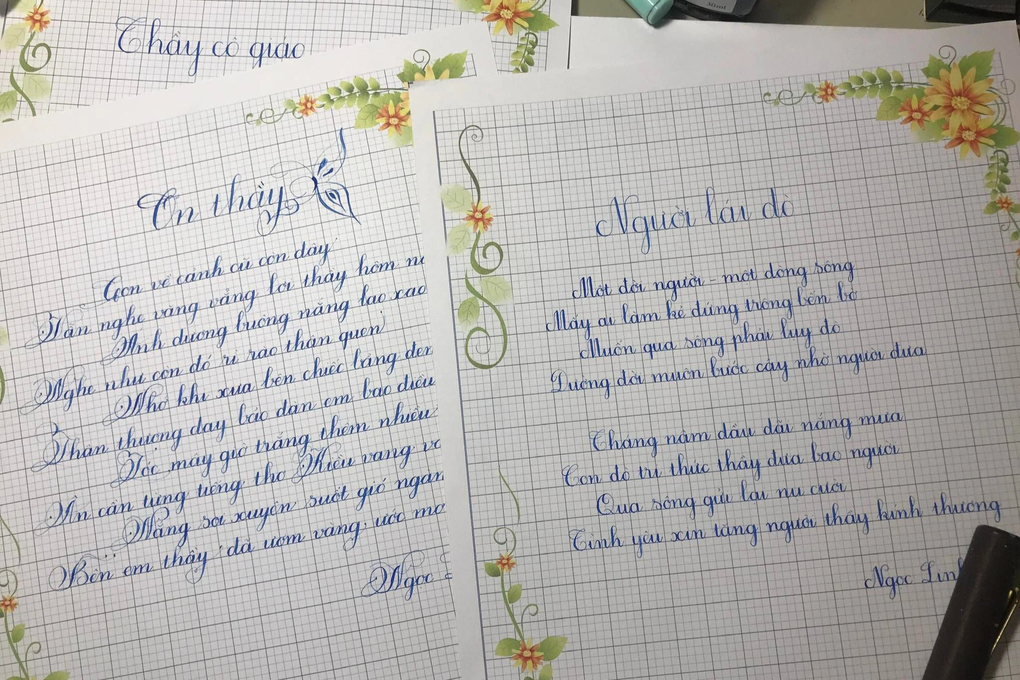 Thầy cô giáo
Ơn thầy
Con về cạnh cũ con đây
Vẫn nghe văng vẳng lời thầy hôm
Ánh dương buông nắng lao xao
Nghe như con đó rì rào thân quen
Nhớ khi xưa bên chiếc bảng đen
Thân thương dạy bảo đàn em bao điều
Tóc mây giờ trắng thêm nhiều
Ân cần từng tiếng thơ Kiều vang
Nắng soi xuyên suốt gió
Bên em thầy đã ươm vàng ước mơ
Ngọc
Người lái đò
Một đời người - một dòng sông
Mấy ai làm kẻ đứng trông bến bờ
Muốn qua sông phải lụy đò
Đường đời muôn bước cậy nhờ người đưa
Tháng năm dầu dãi nắng mưa
Con đò tri thức thầy đưa bao người
Qua sông gửi lại nụ cười
Tình yêu xin tặng người thầy kính thương
Ngọc Linh